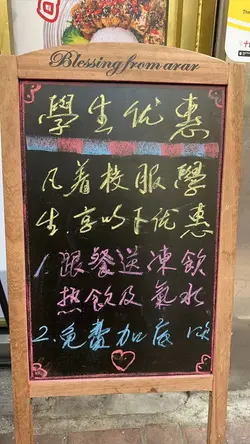 Blessing from arar
學生优惠
凡着校服學
生.享以下优惠
1.跟餐送凍飲
热飲及氣水
2.免費加底1次